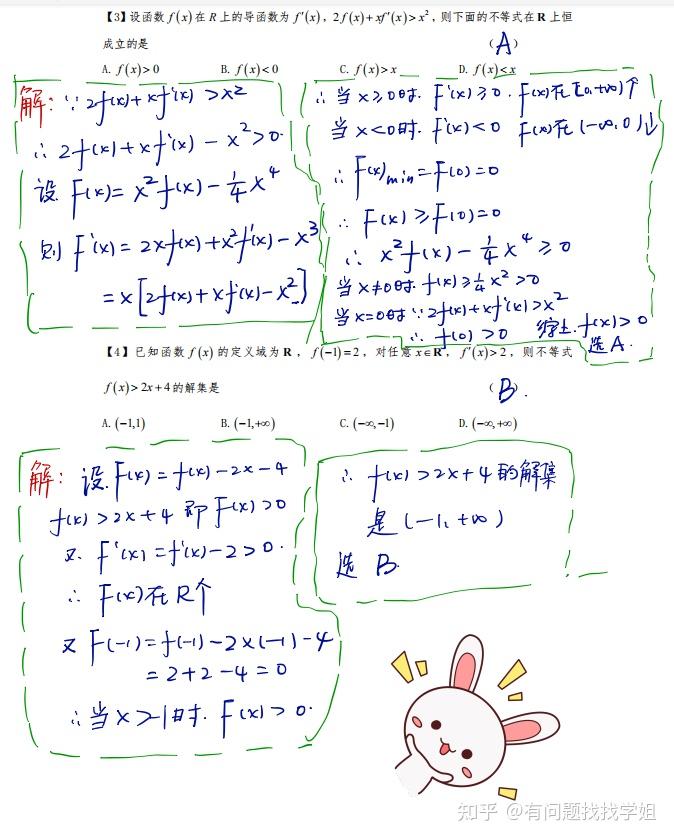 【3】设函数 f(x) 在 R 上的导函数为 f'(x)，2f(x)+xf'(x)>x²，则下面的不等式在 R 上恒
成立的是 （A）
A. f(x)>0 B. f(x)<0 C. f(x)>x D. f(x)<x
解：∵2f(x)+xf'(x)>x²
∴2f(x)+xf'(x)-x²>0.
设 F(x)=x²f(x)-¼x⁴
则 F'(x)=2xf(x)+x²f'(x)-x³
=x[2f(x)+xf'(x)-x²]
∴当x≥0时. F'(x)≥0. F(x)在[0,+∞)↑
当x<0时. F'(x)<0 F(x)在(-∞,0)↓
∴F(x)min=F(0)=0
∴F(x)≥F(0)=0
∴x²f(x)-¼x⁴≥0
当x≠0时. f(x)≥¼x²>0
当x=0时∵2f(x)+xf'(x)>x²
∴f(0)>0 综上.f(x)>0
选A.
【4】已知函数 f(x) 的定义域为 R，f(-1)=2，对任意 x∈R，f'(x)>2，则不等式
f(x)>2x+4 的解集是 （B）.
A. (-1,1) B. (-1,+∞) C. (-∞,-1) D. (-∞,+∞)
解：设F(x)=f(x)-2x-4
f(x)>2x+4 即F(x)>0
又. F'(x)=f'(x)-2>0.
∴F(x)在R↑
又F(-1)=f(-1)-2×(-1)-4
=2+2-4=0
∴当x>-1时. F(x)>0.
∴f(x)>2x+4的解集
是(-1,+∞)
选 B.
知乎 @有问题找找学姐